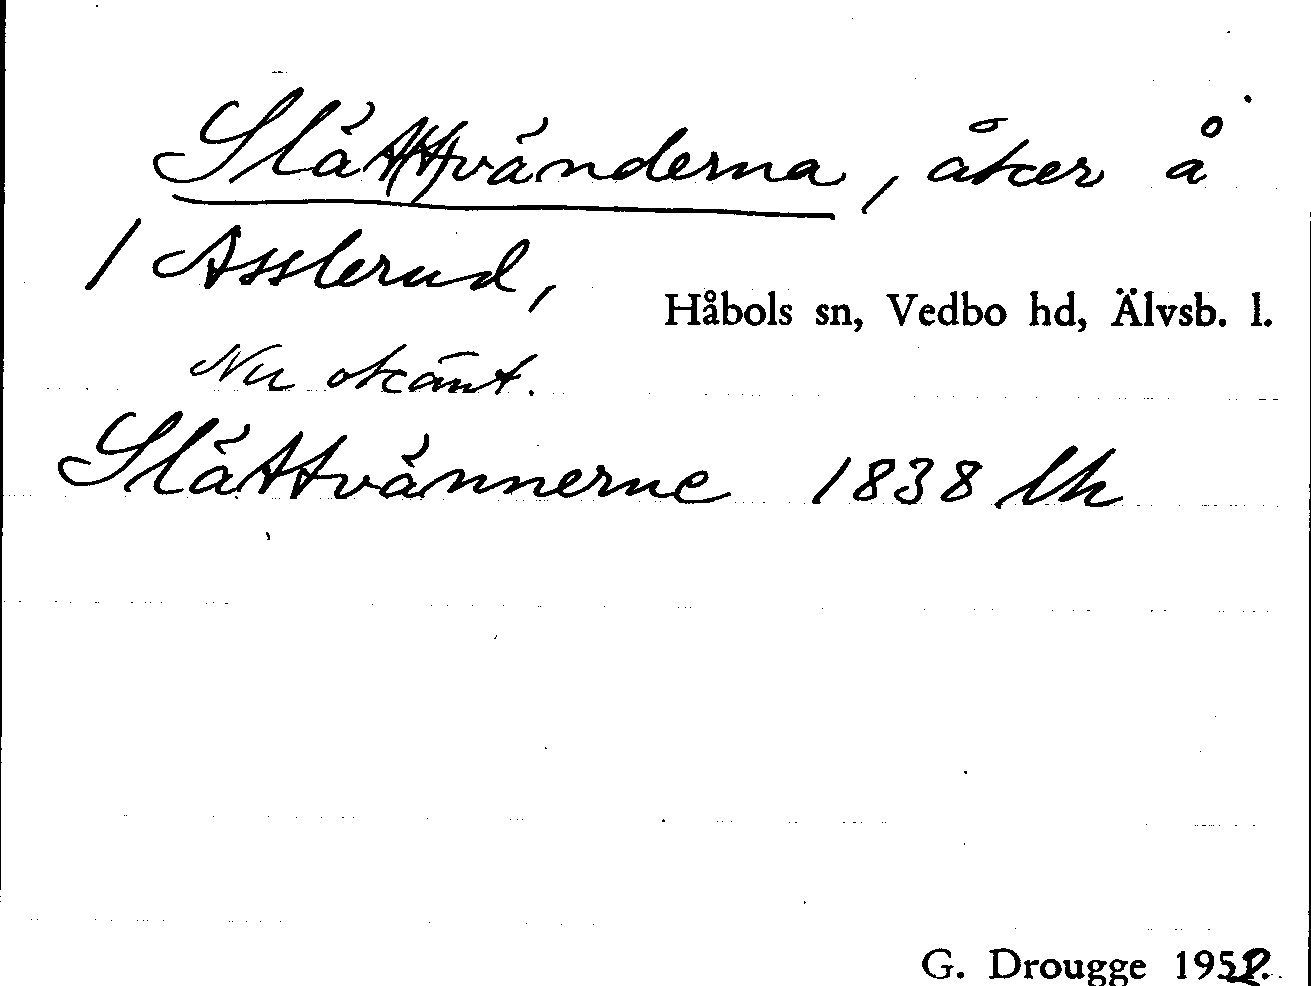 Slättvänderna, åker å
1 Asslerud,
Håbols sn, Vedbo hd, Älvsb. l.
Nu okänt.
Slättvännerne 1838 lh
G. Drougge 1952.